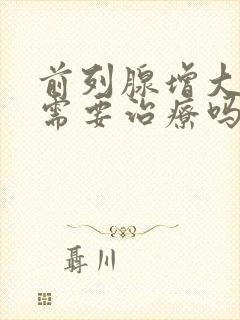 前列腺增大
需要治疗吗
聂川